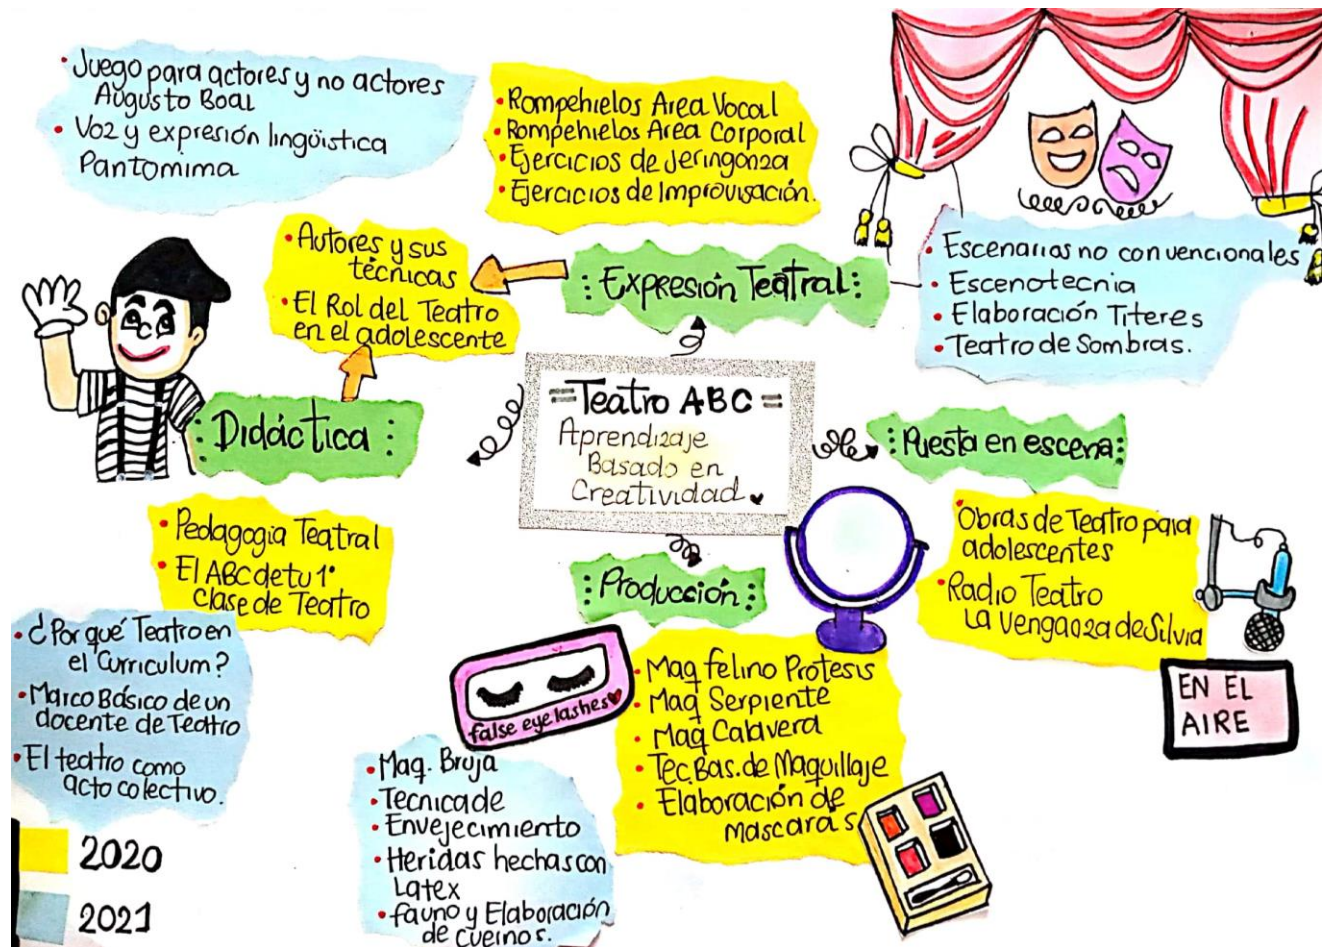 • Juego para actores y no actores
Augusto Boal
• Voz y expresión lingüistica
Pantomima
• Rompehielos Area Vocal
• Rompehielos Area Corporal
• Ejercicios de Jeringonza
• Ejercicios de Improvisación.
• Autores y sus
técnicas
• El Rol del Teatro
en el adolescente
: Expresión Teatral :
• Escenarios no convencionales
• Escenotecnia
• Elaboración Titeres
• Teatro de Sombras.
: Didáctica :
= Teatro ABC =
Aprendizaje
Basado en
Creatividad
: Puesta en escena :
• Pedagogia Teatral
• El ABC de tu 1°
clase de Teatro
• ¿Por qué Teatro en
el Curriculum?
• Marco Básico de un
docente de Teatro
• El teatro como
acto colectivo.
: Producción :
• Obras de Teatro para
adolescentes
• Radio Teatro
La Venganza de Silvia
EN EL
AIRE
false eye lashes
• Maq felino Protesis
• Maq Serpiente
• Maq Calavera
• Tec. Bas. de Maquillaje
• Elaboración de
mascarás
• Maq. Bruja
• Tecnica de
• Envejecimiento
• Heridas hechas con
Latex
• fauno y Elaboración
de cuernos.
2020
2021